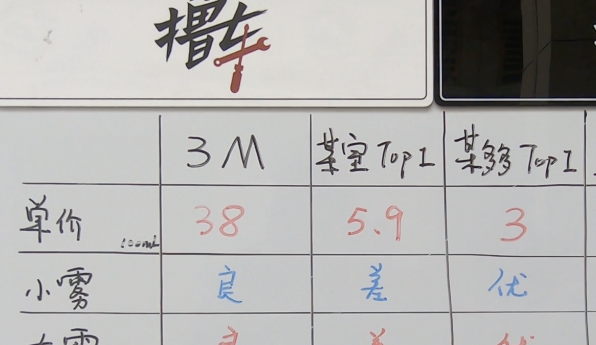 撸车
3M 某宝Top1 某多多Top1
单价 100mL 38 5.9 3
小雾 良 差 优
大雾 良 差 优